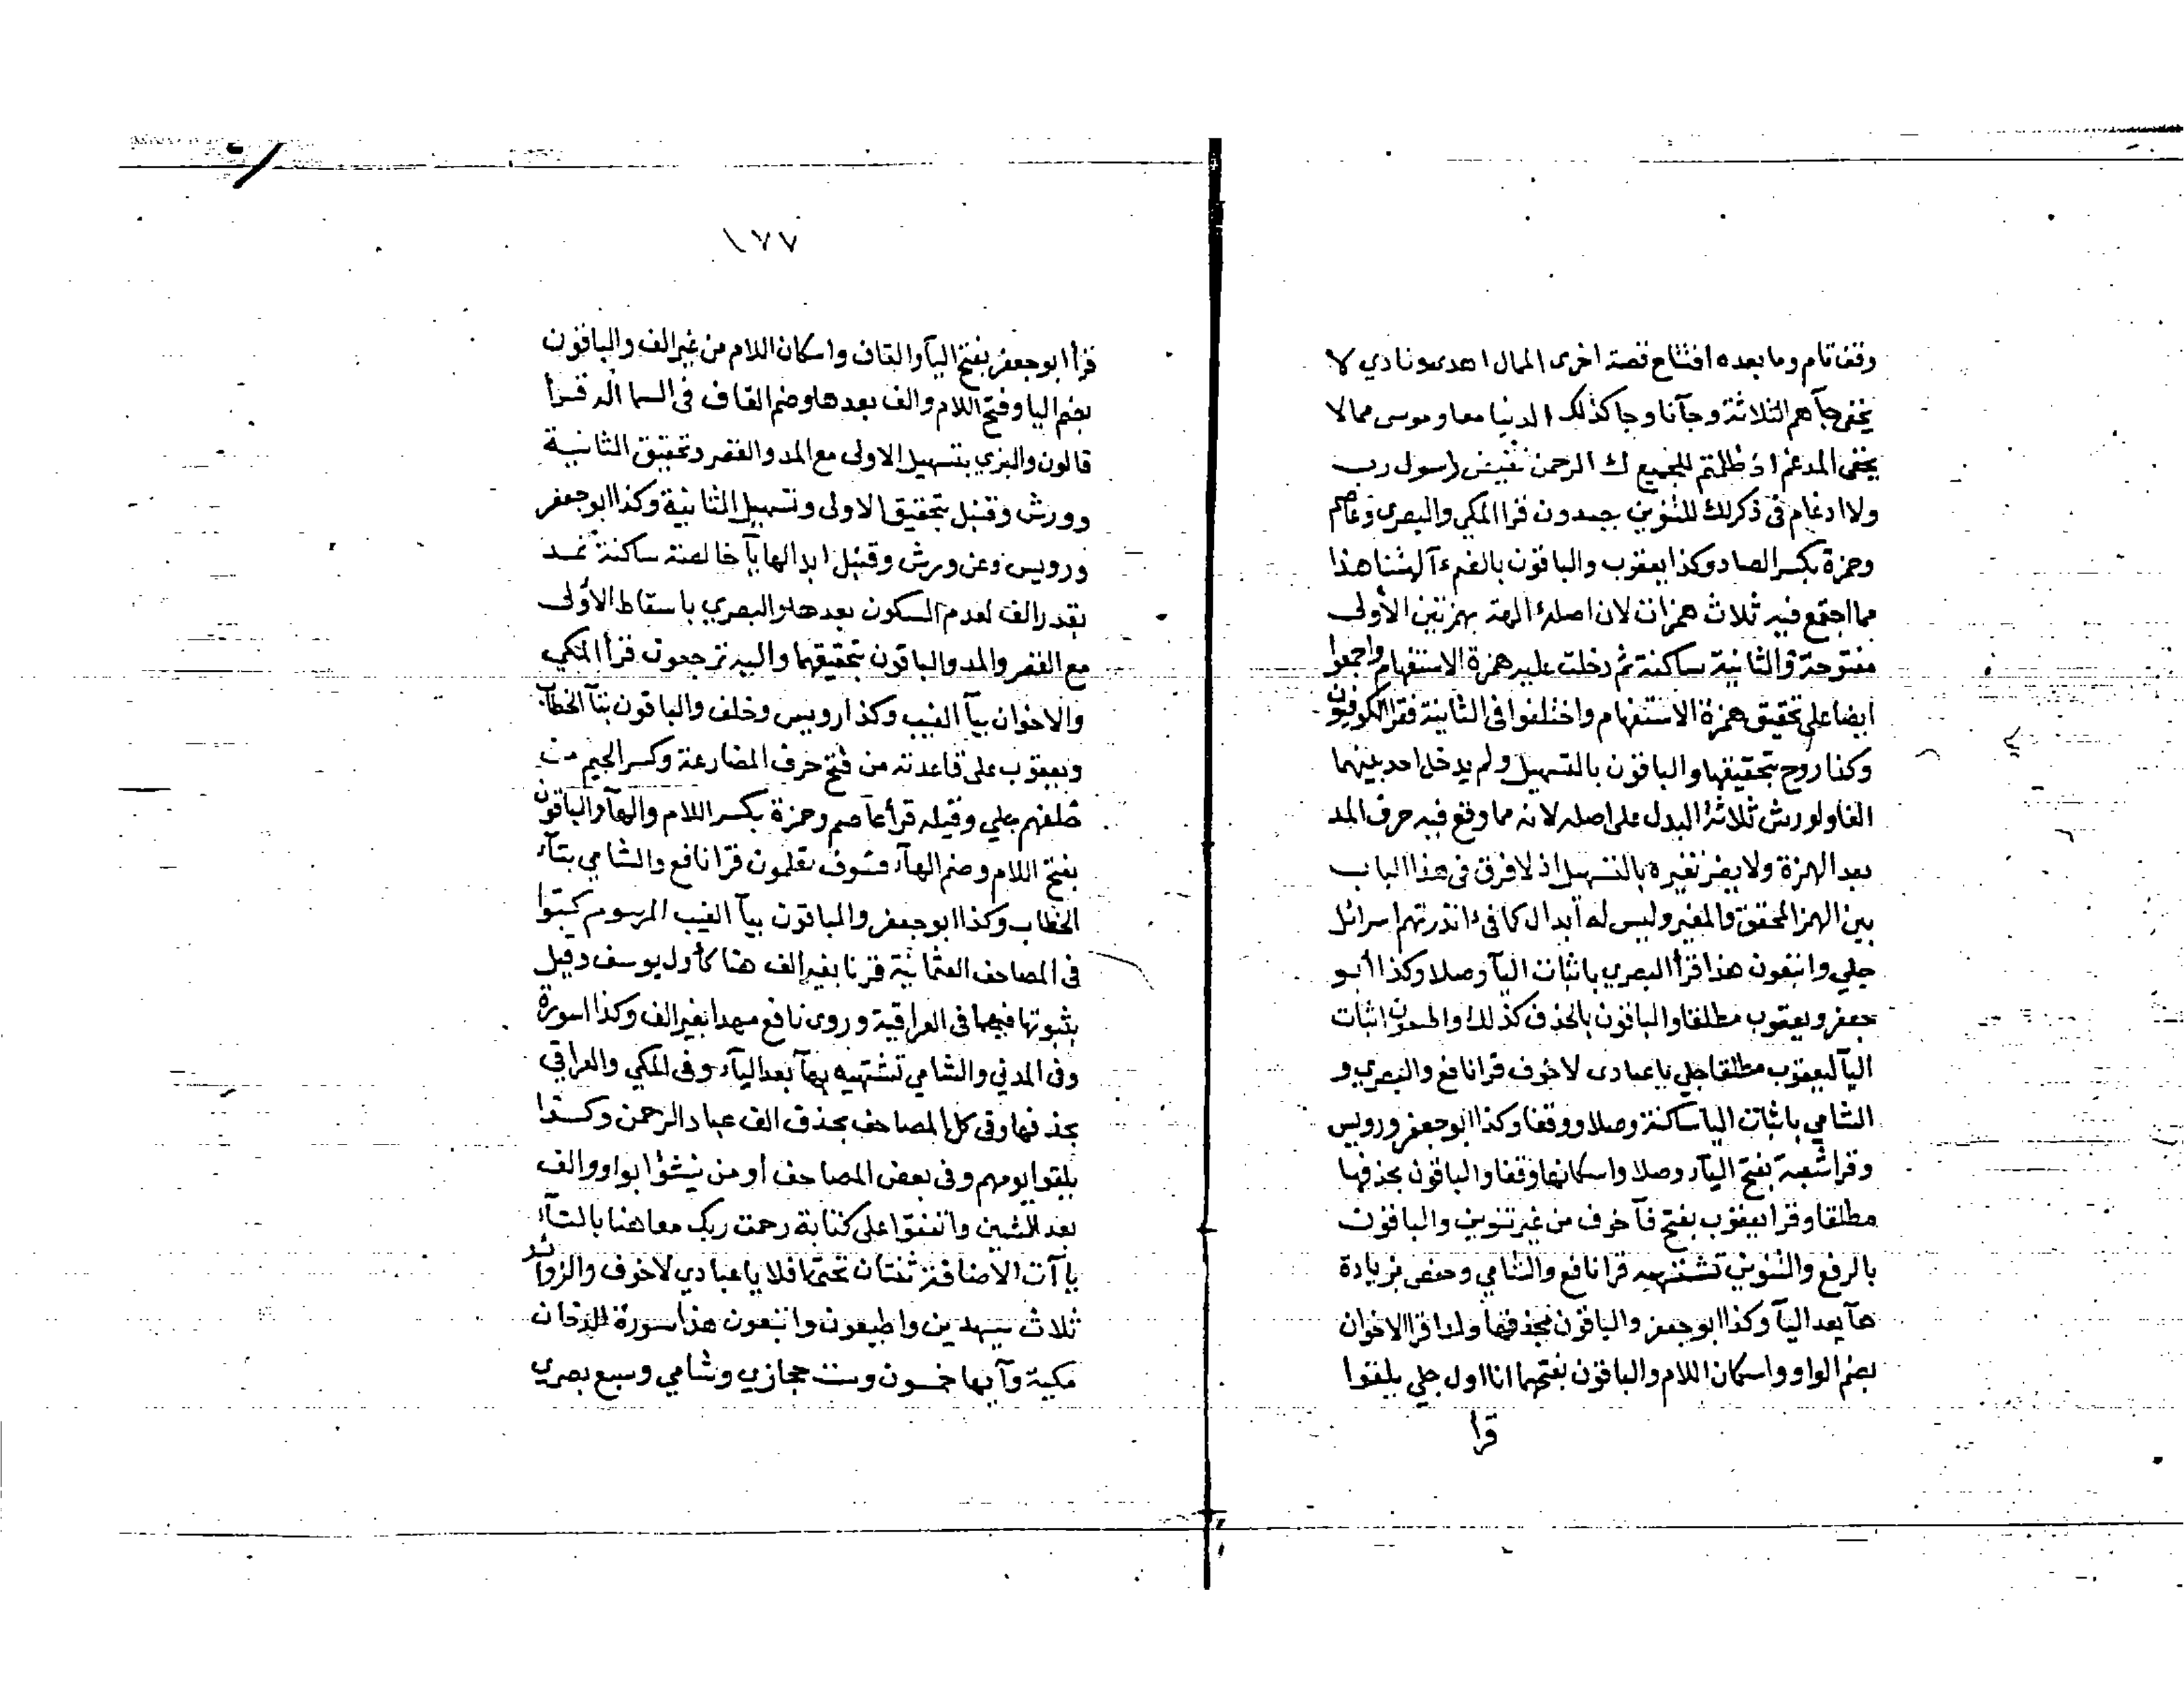 وقف تام وما بعده افتتاح قصة اخرى الممال اهدى ونادي لا
يخفى جآهم الثلاثة وجآنا وجا كذلك الدنيا معا وموسى مما لا
يخفى المدغم اذ ظلمتم للجميع ك الرحمن نقيض رسول رب
ولا ادغام فى ذكر لك للتنوين يصدون قرا المكي والبصري وعاصم
وحمزة بكسر الصاد وكذا يعقوب والباقون بالضم ءآلهتنا هذا
مما اجتمع فيه ثلاث همزات لان اصله ءالهة بهمزتين الأولى
مفتوحة والثانية ساكنة ثم دخلت عليه همزة الاستفهام واجمعوا
ايضا على تحقيق همزة الاستفهام واختلفوا فى الثانية فقرا الكوفيون
وكذا روح بتحقيقها والباقون بالتسهيل ولم يدخل احد بينهما
الفا ولورش ثلاثة البدل على اصله لانه مما وقع فيه حرف المد
بعد الهمزة ولا يضر تغيره بالتسهيل اذ لا فرق فى هذا الباب
بين الهمز المحقق والمغير وليس له ابدال كما فى ءانذرتهم اسرائل
جلي واتبعون هذا قرأ البصري باثبات اليآ وصلا وكذا أبو
جعفر ويعقوب مطلقا والباقون بالحذف كذلك واطيعون اثبات
اليآ ليعقوب مطلقا جلي يا عبادى لا خوف قرا نافع والبصري و
الشامي باثبات اليا ساكنة وصلا ووقفا وكذا ابو جعفر ورويس
وقرا شعبة بفتح اليآء وصلا واسكانها وقفا والباقون بحذفها
مطلقا وقرا يعقوب بفتح فآ خوف من غير تنوين والباقون
بالرفع والتنوين تشتهيه قرا نافع والشامي وحفص بزيادة
هآ بعد اليآ وكذا ابو جعفر والباقون بحذفها ولد قرا الاخوان
بضم الواو واسكان اللام والباقون بفتحهما انا اول جلي يلقوا
قرا
١٧٧
قرأ ابو جعفر بفتح اليآ والقاف واسكان اللام من غير الف والباقون
بضم اليا وفتح اللام والف بعدها وضم القاف فى السما اله قرأ
قالون والبزي بتسهيل الاولى مع المد والقصر وتحقيق الثانية
وورش وقنبل بتحقيق الاولى وتسهيل الثانية وكذا ابو جعفر
ورويس وعن ورش وقنبل ابدالها يآ خالصة ساكنة تمد
بقدر الف لعدم السكون بعدها والبصري باسقاط الأولى
مع القصر والمد والباقون بتحقيقهما واليه ترجعون قرأ المكي
والاخوان بيآ الغيب وكذا رويس وخلف والباقون بتآ الخطاب
ويعقوب على قاعدته من فتح حرف المضارعة وكسر الجيم من
خلقهم جلي وقيله قرأ عاصم وحمزة بكسر اللام والهآ والباقون
بفتح اللام وضم الهآء فسوف تعلمون قرا نافع والشامي بتآء
الخطاب وكذا ابو جعفر والباقون بيآ الغيب المرسوم كتبوا
فى المصاحف العثمانية قرنا بغير الف هنا كأول يوسف وقيل
بثبوتها فيهما فى العراقية وروى نافع مهدا بغير الف وكذا اسورة
وفى المدني والشامي تشتهيه بهآ بعد اليآء وفى المكي والعراقي
بحذفها وفى كل المصاحف بحذف الف عباد الرحمن وكتبوا
يلقوا يومهم وفى بعض المصاحف أو من ينشؤا بواو والف
بعد الشين واتفقوا على كتابة رحمت ربك معا هنا بالتآء
يا آت الاضافة ثنتان تحتى افلا يا عبادي لا خوف والزوائد
ثلاث سيهدين واطيعون واتبعون هذا سورة الدخان
مكية وآيها خمسون وست حجازي وشامي وسبع بصري